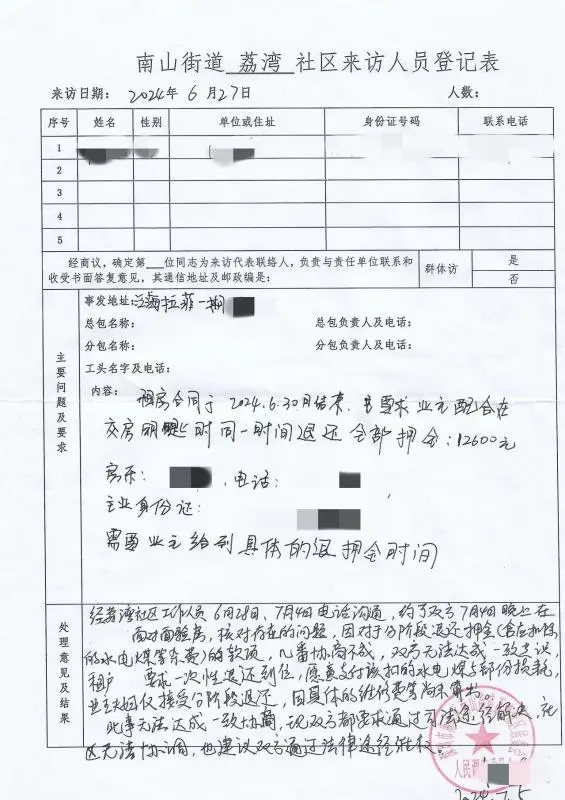 南山街道 荔湾 社区来访人员登记表
来访日期: 2024年 6月27日 人数:
序号 姓名 性别 单位或住址 身份证号码 联系电话
1
2
3
4
5
经商议，确定第 位同志为来访代表联络人，负责与责任单位联系和
收受书面答复意见，其通信地址及邮政编是:
群体访 是
否
主要问题及要求
事发地址: 拉菲一期
总包名称: 总包负责人及电话:
分包名称: 分包负责人及电话:
工头名字及电话:
内容: 租房合同于2024.6.30日结束. 要求业主配合在
交房 时同一时间退还全部押金:12600元
房东: .电话:
业主身份证:
需要业主给到具体的退押金时间
处理意见及结果
经荔湾社区工作人员6月28日、7月4日电话沟通，约了双方7月4日晚上在
面对面验房，核对存在的问题，因对于分阶段退还押金(含应扣除
的水电煤等杂费)的款项，几番协商不成，双方无法达成一致意见，
租户 要求一次性退还到位，愿意支付该扣的水电煤与部份损耗，
业主夫妇仅接受分阶段退还，因具体的维修费等尚未算出。
此事无法达成一致协商，现双方都要求通过司法途径解决，社
区无法协调，也建议双方通过法律途径维权。
人民调
2024.7.5